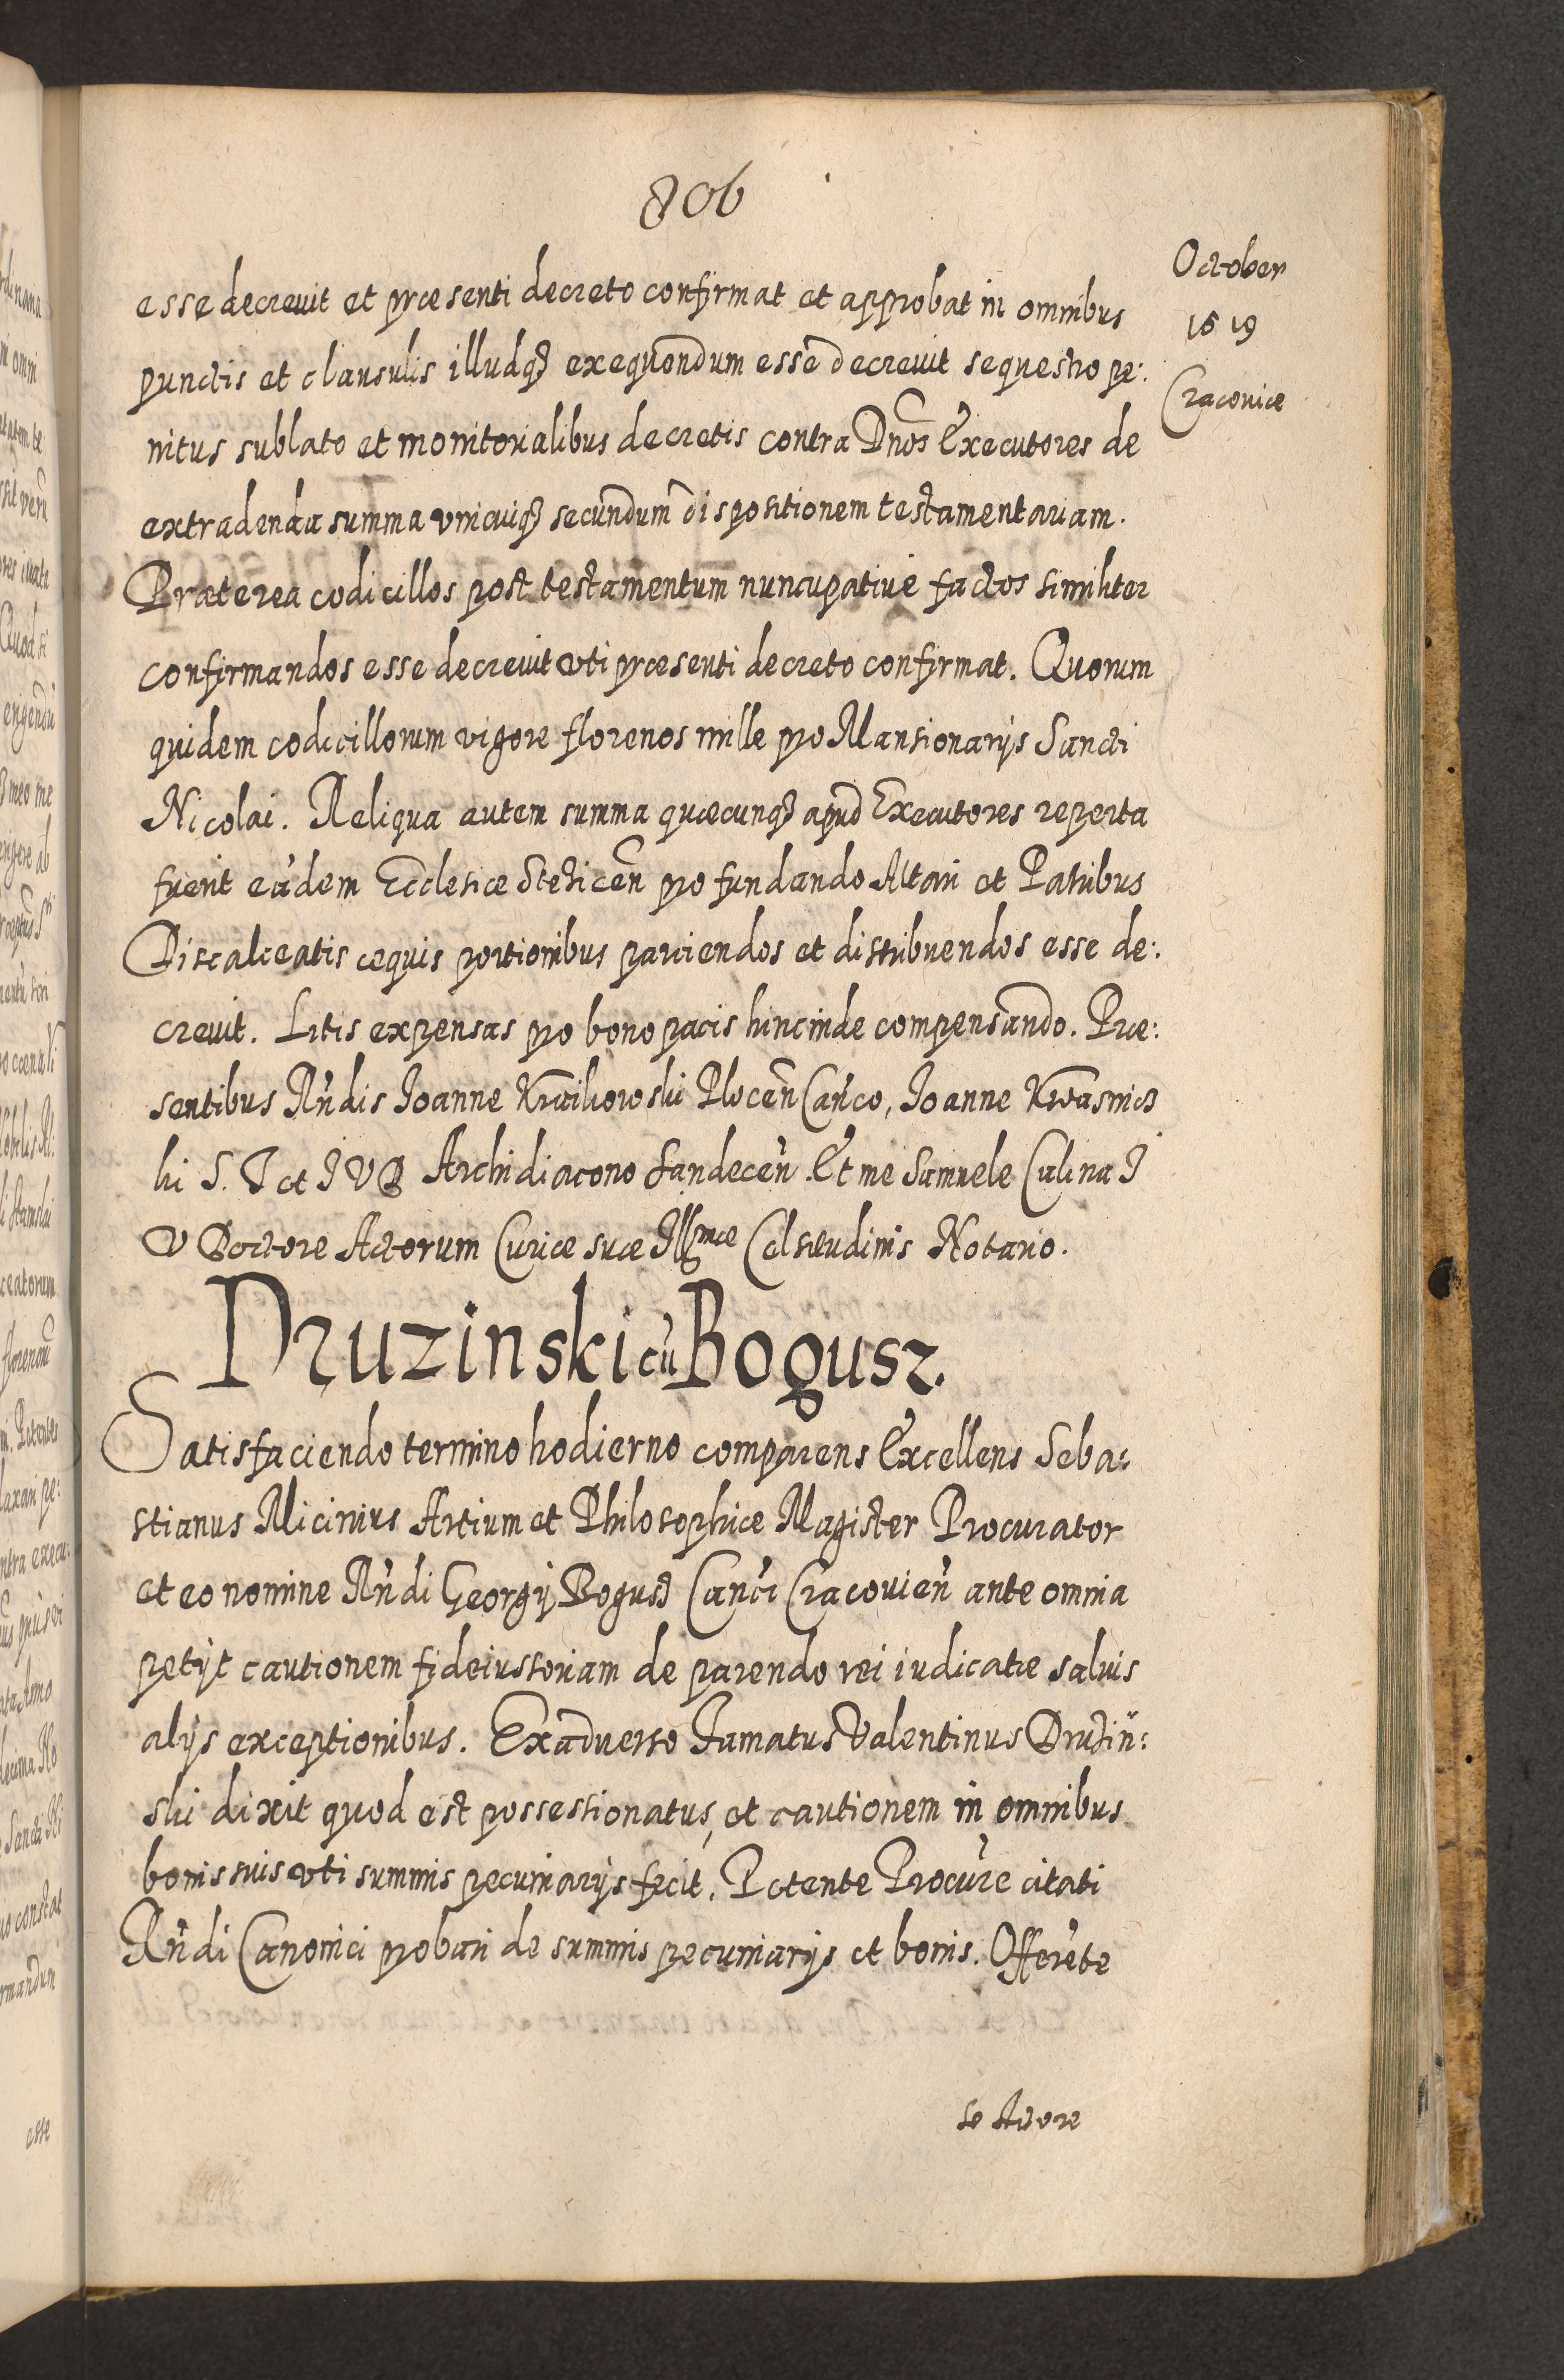 806
October
1619
Cracoviæ
esse decrevit et præsenti decreto confirmat et approbat in omnibus
punctis et clausulis illudq3 exequendum esse decrevit sequestro pe:
nitus sublato et monitorialibus decretis contra Dnos Executores de
extradenda summa unicuiq3 secundum dispositionem testamentariam.
Præterea codicillos post testamentum nuncupative factos similiter
confirmandos esse decrevit uti præsenti decreto confirmat. Quorum
quidem codicillorum vigore florenos mille pro Mansionarijs Sancti
Nicolai. Reliqua autem summa quæcunq3 apud Executores reperta
fuerit eidem Ecclesiæ pro fundando Altari et Patribus
Discalceatis æquis portionibus parciendos et distribuendos esse de:
crevit. Litis expensas pro bono pacis hincinde compensando. Præ:
sentibus Rndis Joanne Plocen Canco, Joanne
ki S. T et J V D Archidiacono Sandecen. Et me Samuele Culina J
V Doctore Actorum Curiæ suæ Illmæ Celsitudinis Notario.
Druzinski cu Bogusz.
Satisfaciendo termino hodierno comparens Excellens Seba:
stianus Micinius Artium et Philosophiæ Magister Procurator
et eo nomine Rndi Georgij Bogus3 Canci Cracovien ante omnia
petijt cautionem fideiussoriam de parendo rei iudicatæ salvis
alijs exceptionibus. Exadverso Famatus Valentinus Druzin:
ski dixit quod est possessionatus, et cautionem in omnibus
bonis suis uti summis pecuniarijs fecit. Petente Procure citati
Rndi Canonici probari de summis pecuniarijs et bonis. Offerete
se Actore